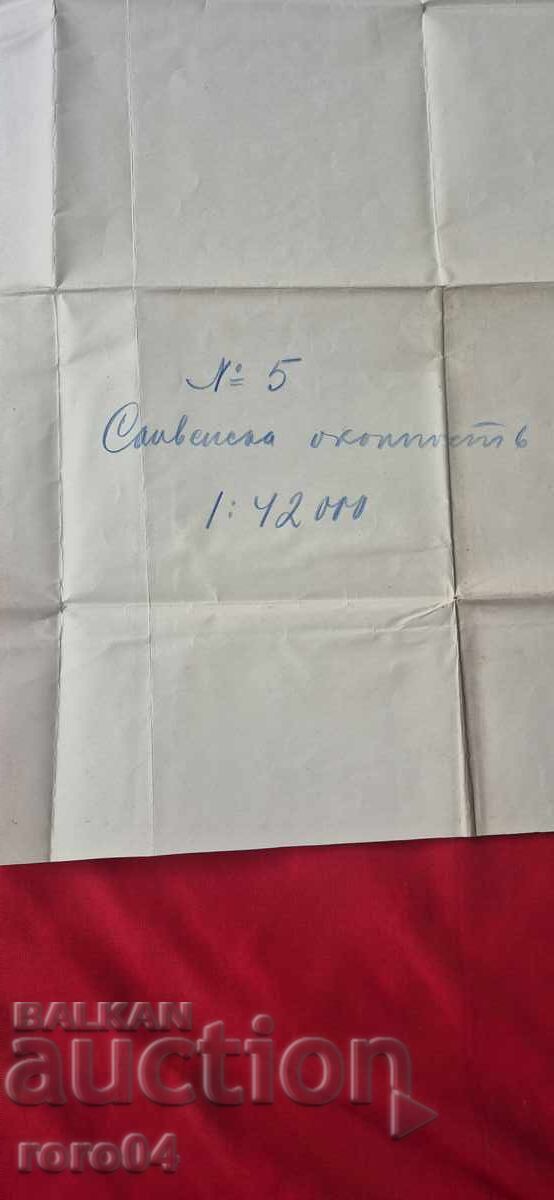 № 5
Сливенска околность
1:42000
BALKAN
auction
roro04